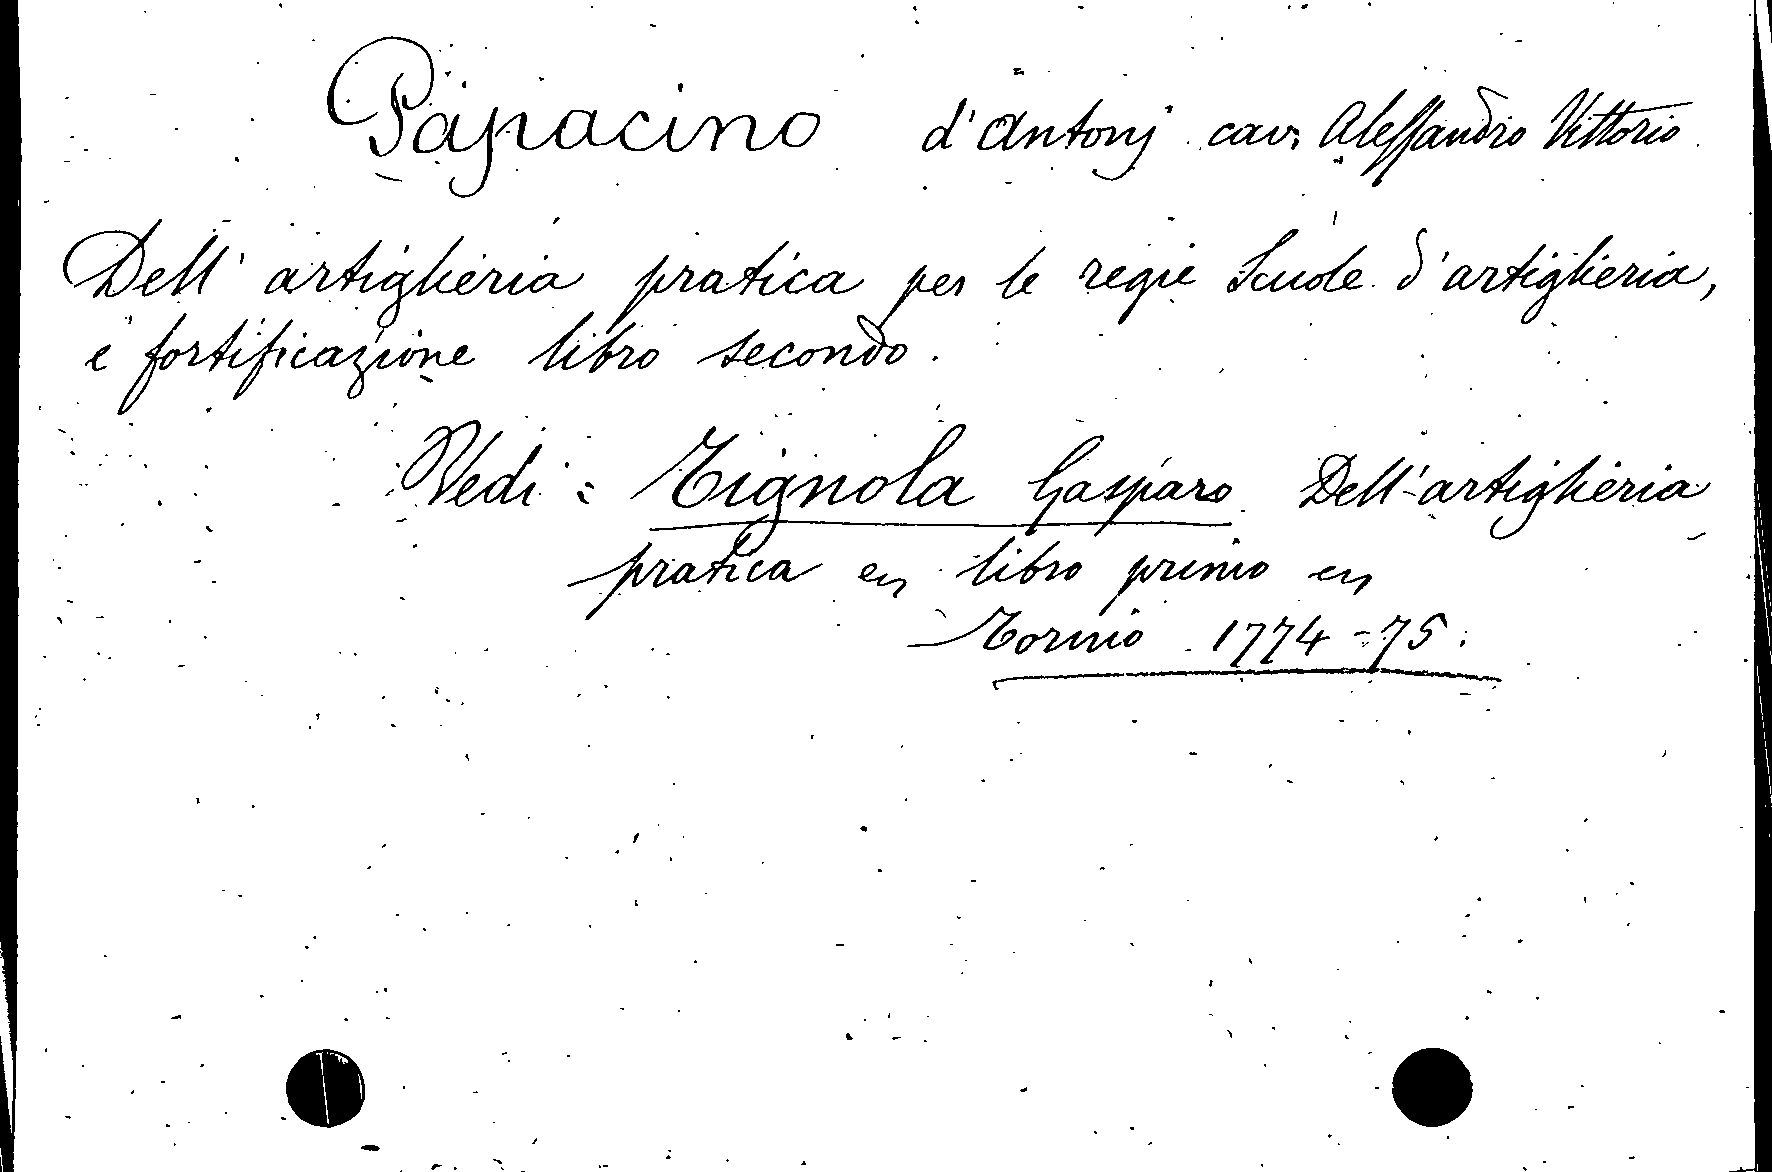 Papacino d'Antonj cav. Alessandro Vittorio
Dell' artiglieria pratica per le regie Scuole d'artiglieria,
e fortificazione libro secondo.
Vedi: Tignola Gasparo Dell'artiglieria
pratica ec, libro primo ec,
Torino 1774-75.